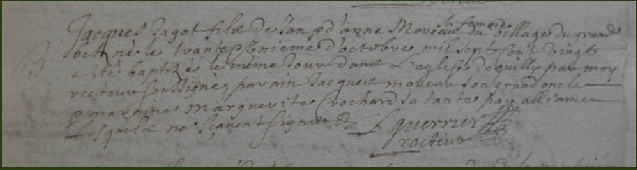 sa femme
Jacques Jagot fils de Jan et d'anne Moreau du village du grand
né le trante et unieme d'octobre mil sept sent vingt
a esté baptisé le même jour dans l'eglise de par moy
recteur soussigné, parain Jacques moreau son grand oncle
maraine Marguerite Brochard sa tante par alliance
Lesquels ne sçavent signer
L guerrier
recteur